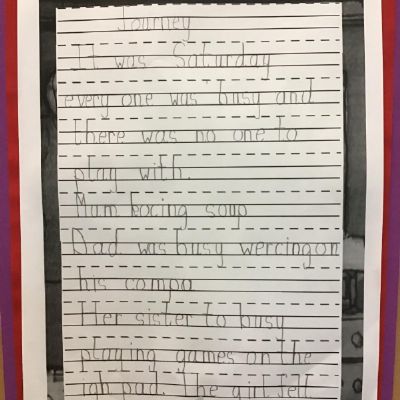 Journey
It was Saturday
every one was busy and
there was no one to
play with.
Mum kocing soup
Dad was busy wercing on
his compa
Her sister to busy
playing games on the
ighpad. The girl felt